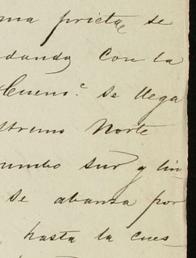 ma prieta se
dando con la
Cuen.ª se llega
stremo Norte
umbo sur y lin
se abanza por
hasta la cues